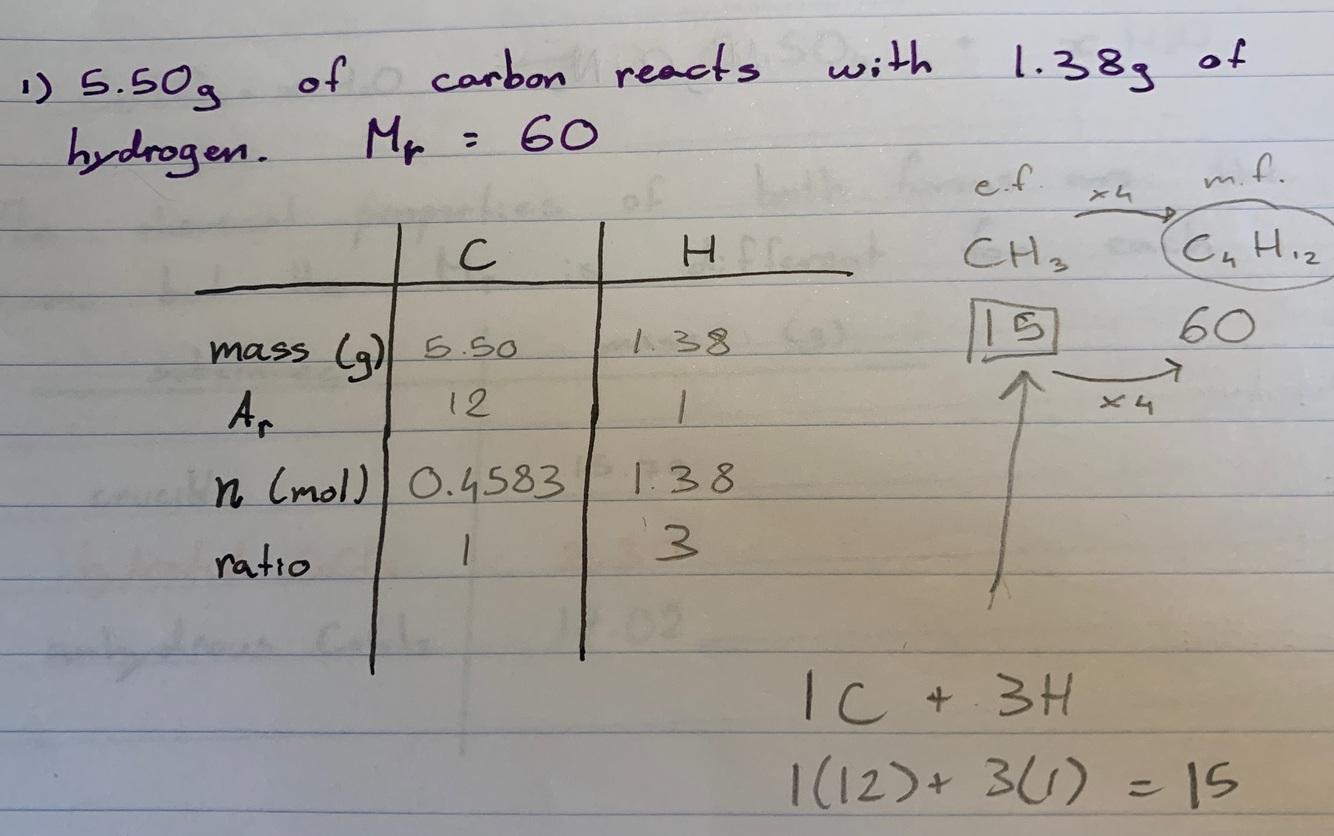 1) 5.50g of carbon reacts with 1.38g of
hydrogen. Mr = 60
C H
mass (g) 5.50 1.38
Ar 12 1
n (mol) 0.4583 1.38
ratio 1 3
e.f. ×4 m.f.
CH₃ C₄H₁₂
15 60
×4
1C + 3H
1(12) + 3(1) = 15